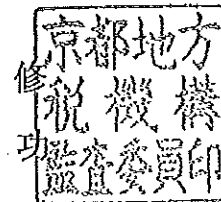 京都地方
税機構
監査委員印
修
功